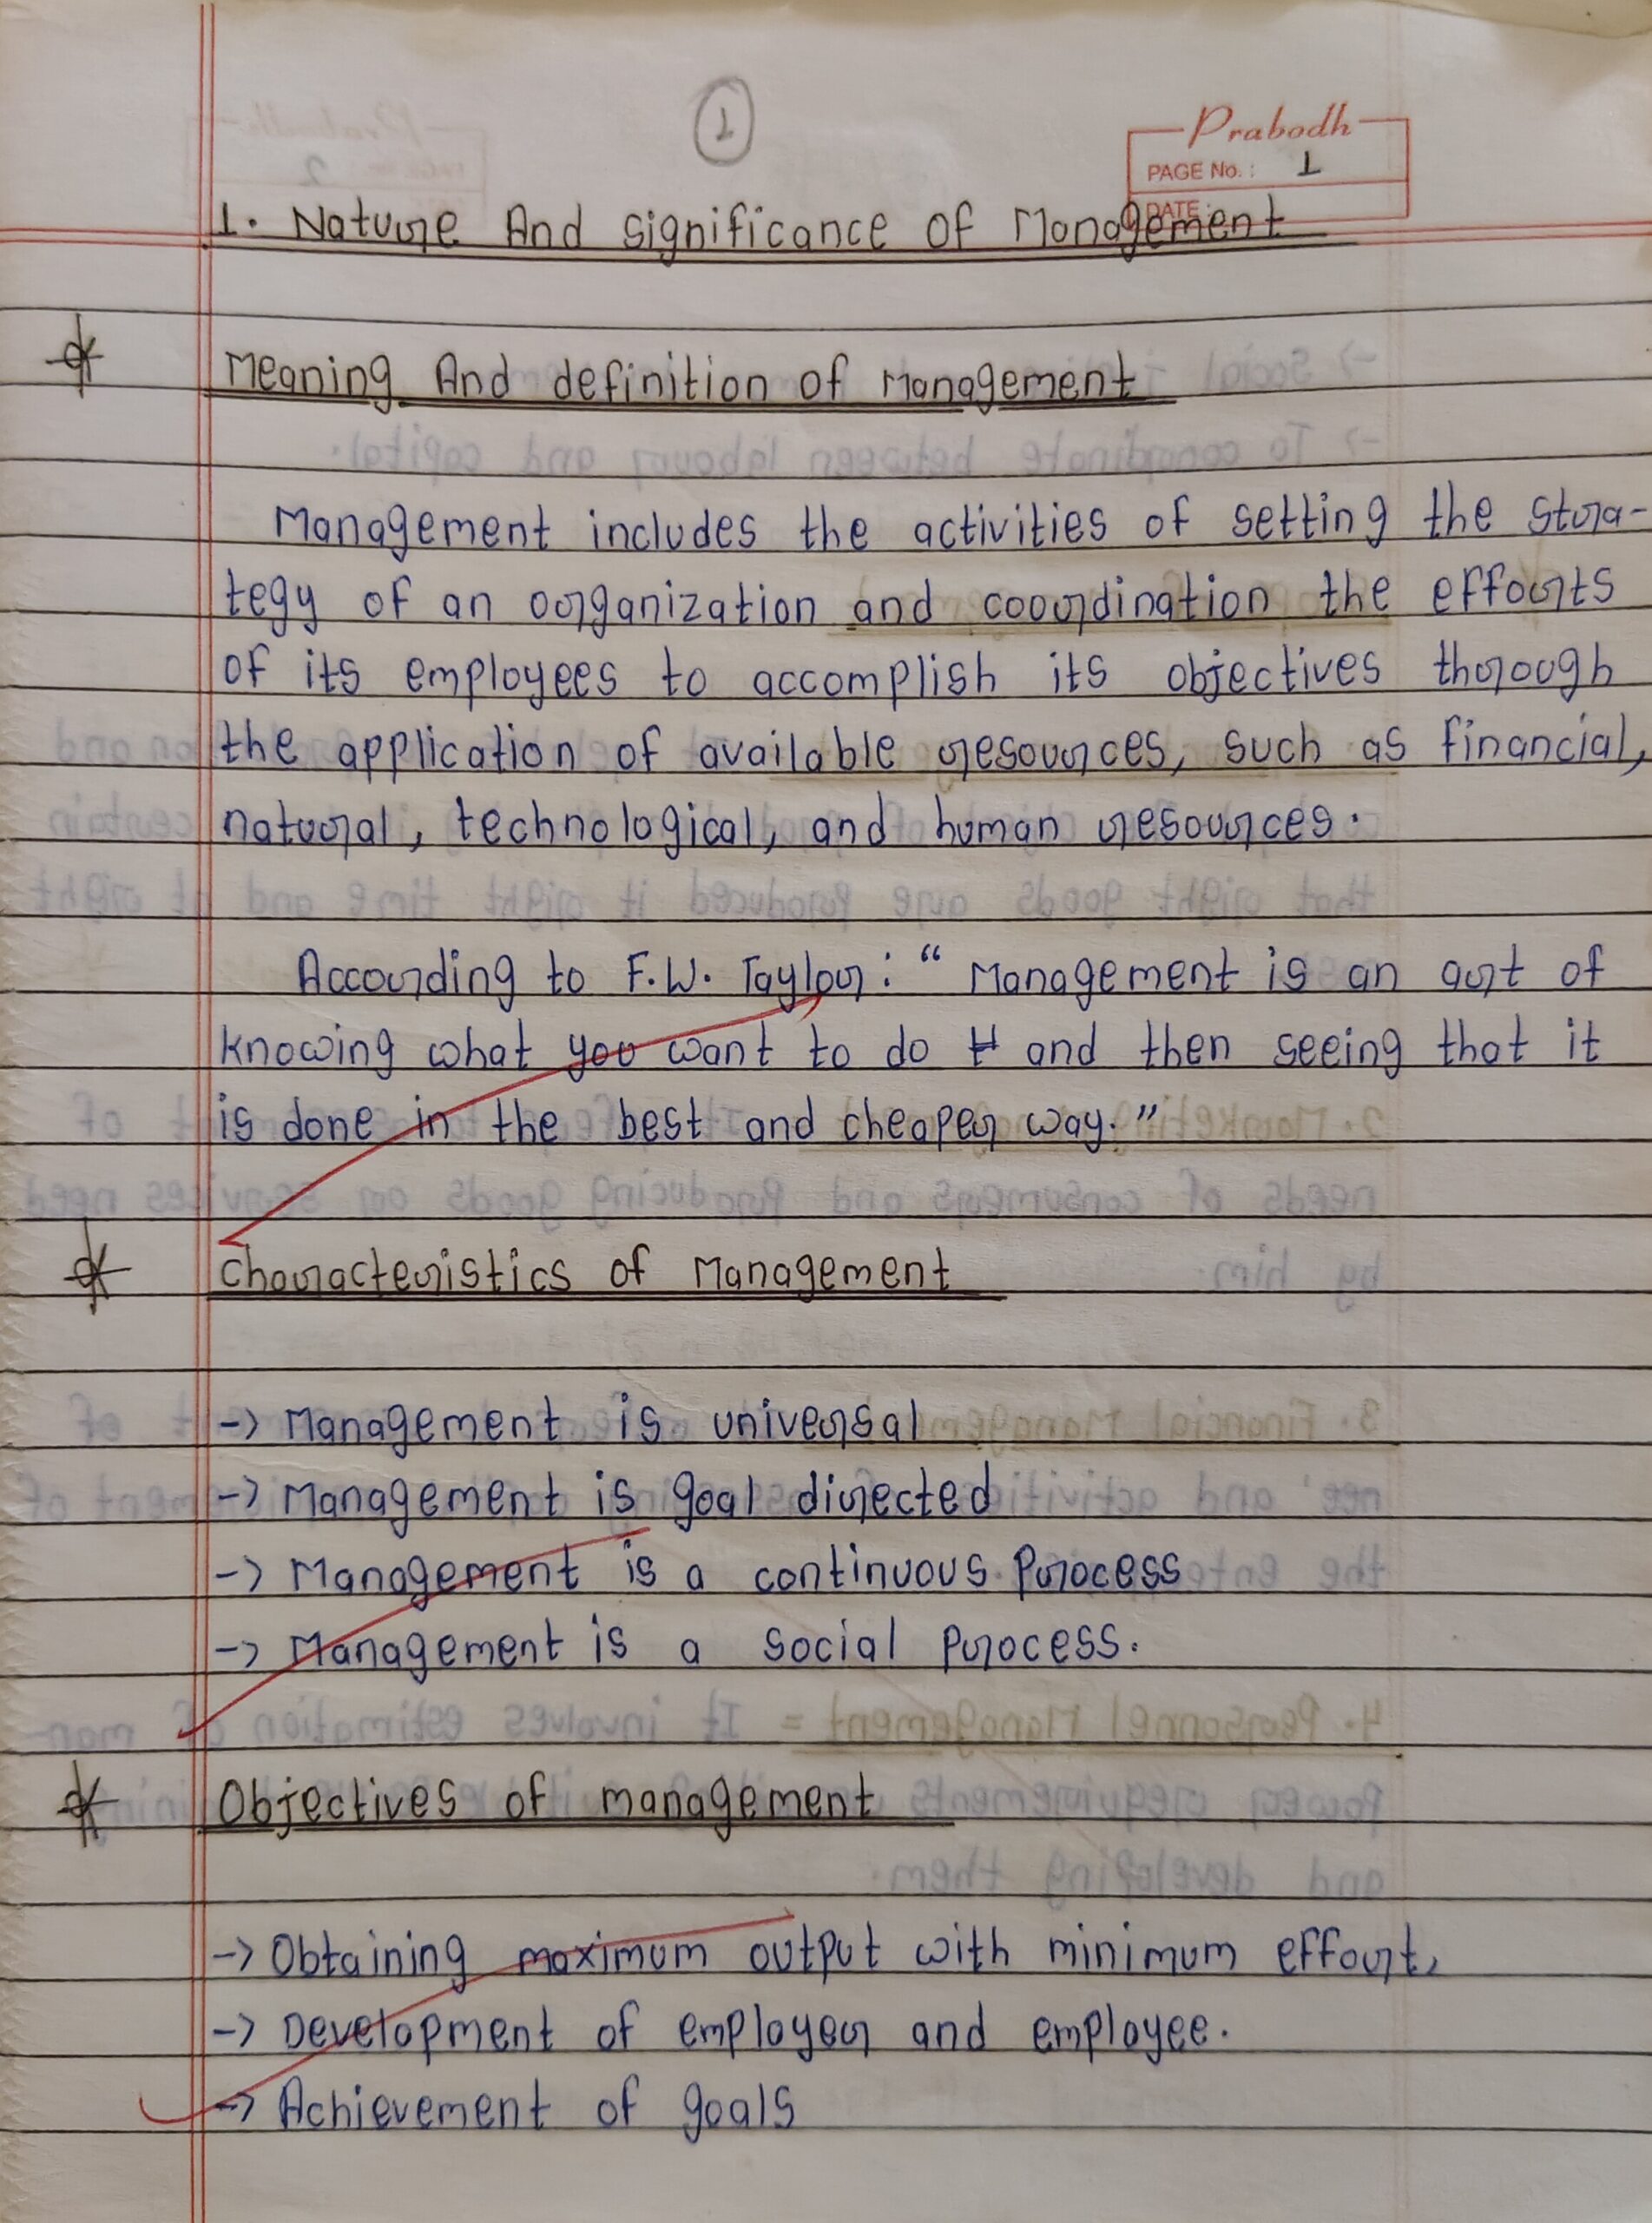 1
Prabodh
PAGE No.: 1
DATE:
1. Nature And Significance of Management
Meaning And definition of Management
Management includes the activities of setting the stra-
tegy of an organization and coordination the efforts
of its employees to accomplish its objectives through
the application of available resources, such as financial,
natural, technological, and human resources.
According to F.W. Taylor: “Management is an art of
knowing what you want to do and then seeing that it
is done in the best and cheaper way.”
Characteristics of Management
-> Management is universal
-> Management is goal directed
-> Management is a continuous process
-> Management is a social process.
Objectives of management
-> Obtaining maximum output with minimum effort,
-> Development of employer and employee.
-> Achievement of goals